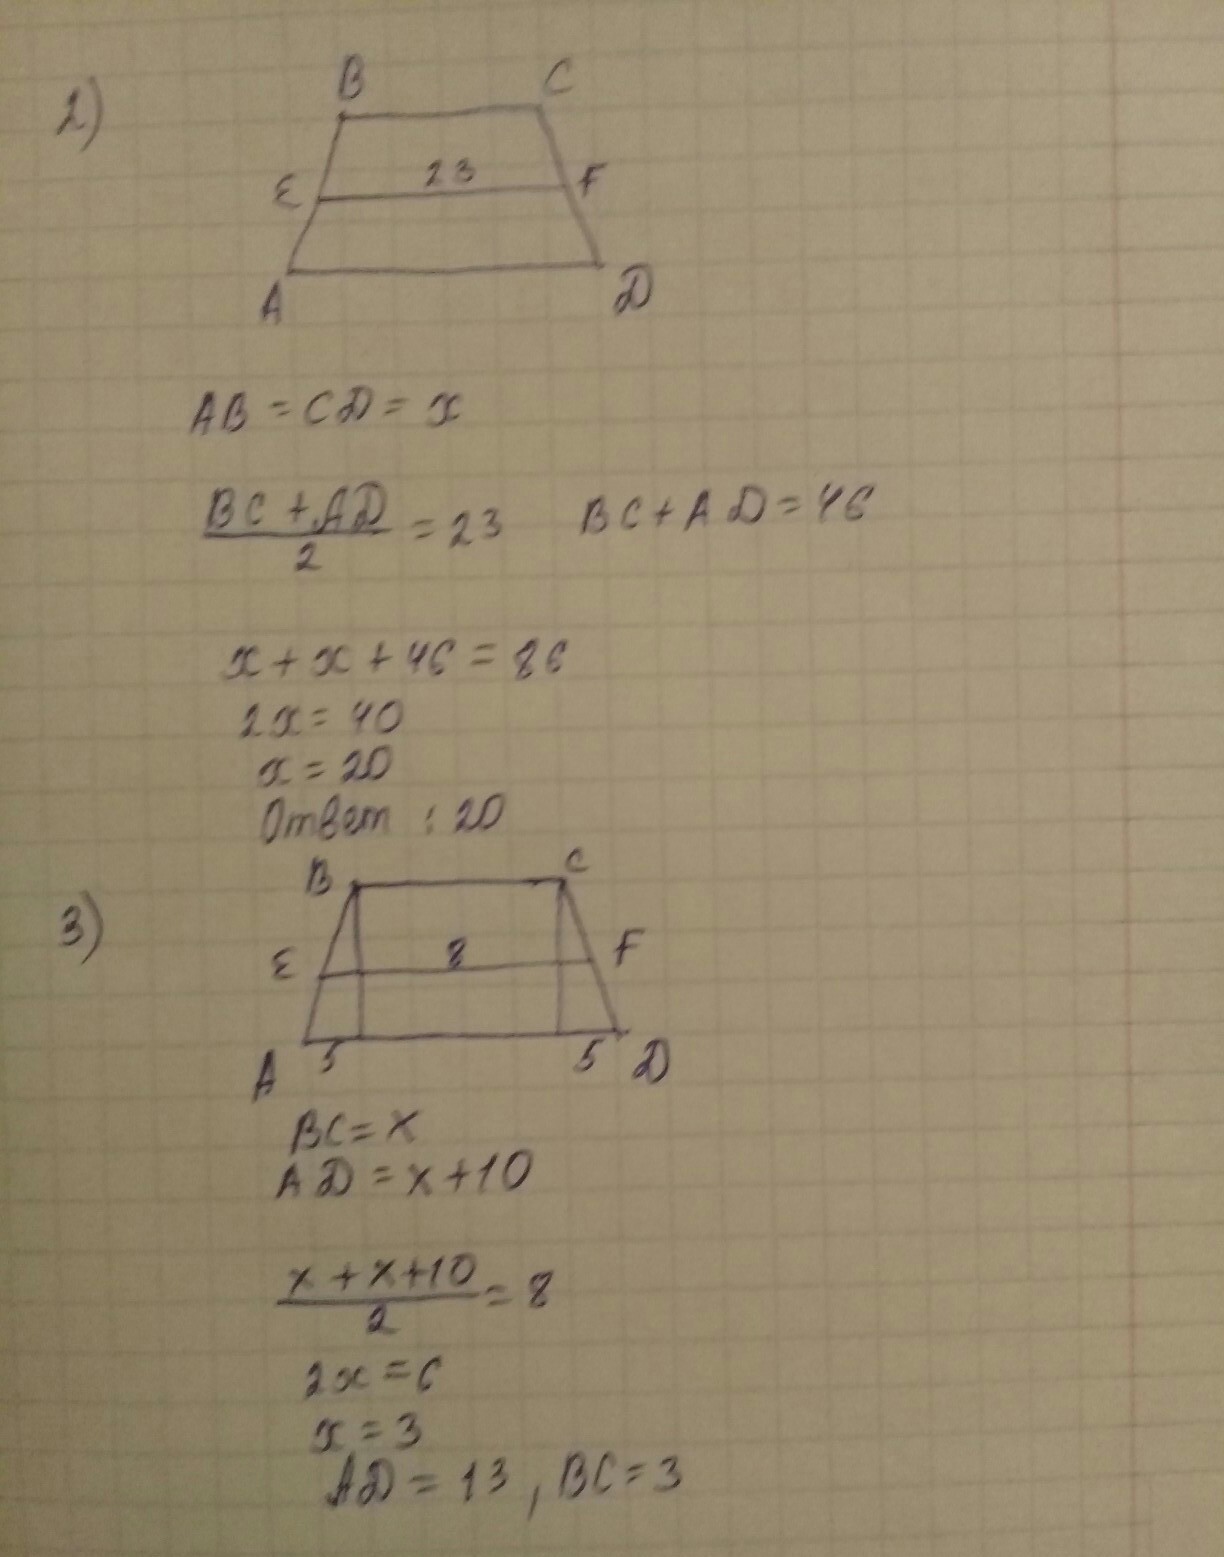 2)
B C
E 23 F
A D
AB = CD = x
(BC + AD)/2 = 23 BC + AD = 46
x + x + 46 = 86
2x = 40
x = 20
Ответ : 20
3)
B C
E 8 F
A 5 5 D
BC = x
AD = x + 10
(x + x + 10)/2 = 8
2x = 6
x = 3
AD = 13 , BC = 3